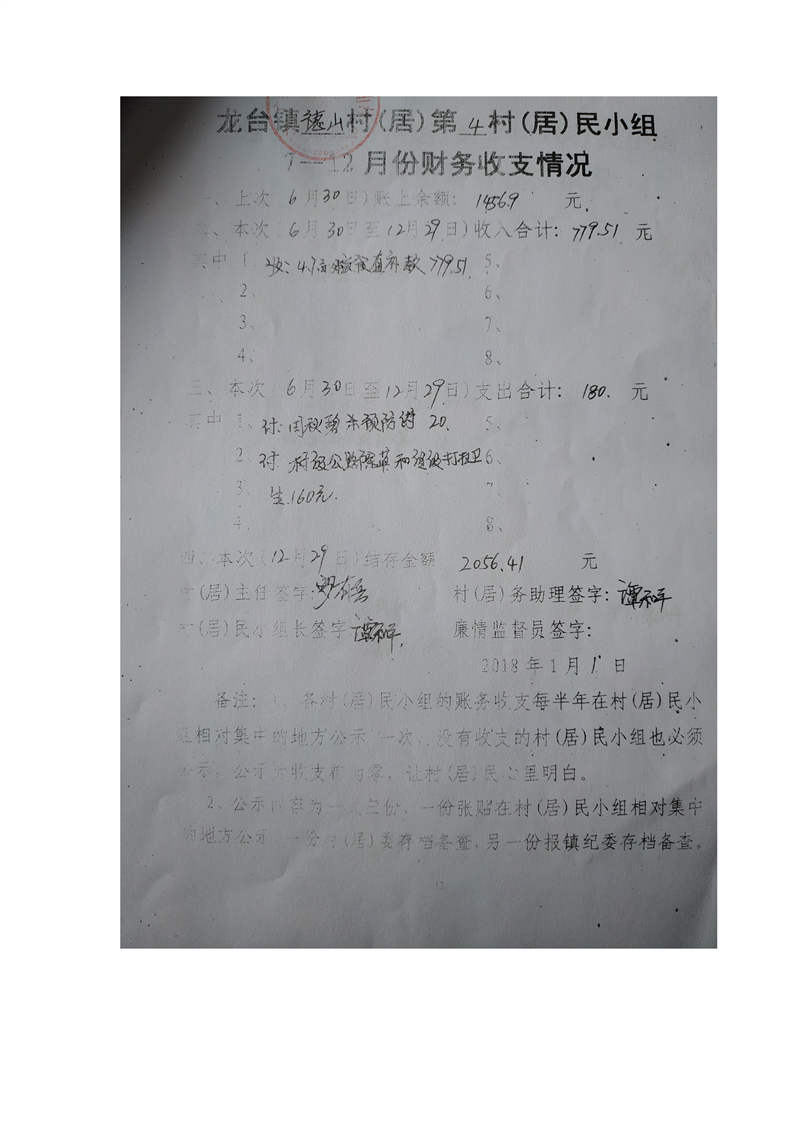 龙台镇德山村(居)第4村(居)民小组
7—12月份财务收支情况
一、上次(6月30日)账上余额: 1456.9 元
二、本次(6月30日至12月29日)收入合计: 779.51 元
其中 1、收: 款779.51 5、
2、 6、
3、 7、
4、 8、
三、本次(6月30日至12月29日)支出合计: 180. 元
其中 1、付: 周秋碧 预防 20. 5、
2、付: 村级公路除草和 打扫卫 6、
3、生.160元. 7、
4、 8、
四、本次(12月29日)结存金额 2056.41 元
村(居)主任签字: 村(居)务助理签字: 谭和平
村(居)民小组长签字: 谭和平 廉情监督员签字:
2018年1月1日
备注: 1、各村(居)民小组的账务收支每半年在村(居)民小
组相对集中的地方公示一次,没有收支的村(居)民小组也必须
公示,公示为收支都为零,让村(居)民心里明白。
2、公示内容为一式三份,一份张贴在村(居)民小组相对集中
的地方公示,一份村(居)委存档备查,另一份报镇纪委存档备查。